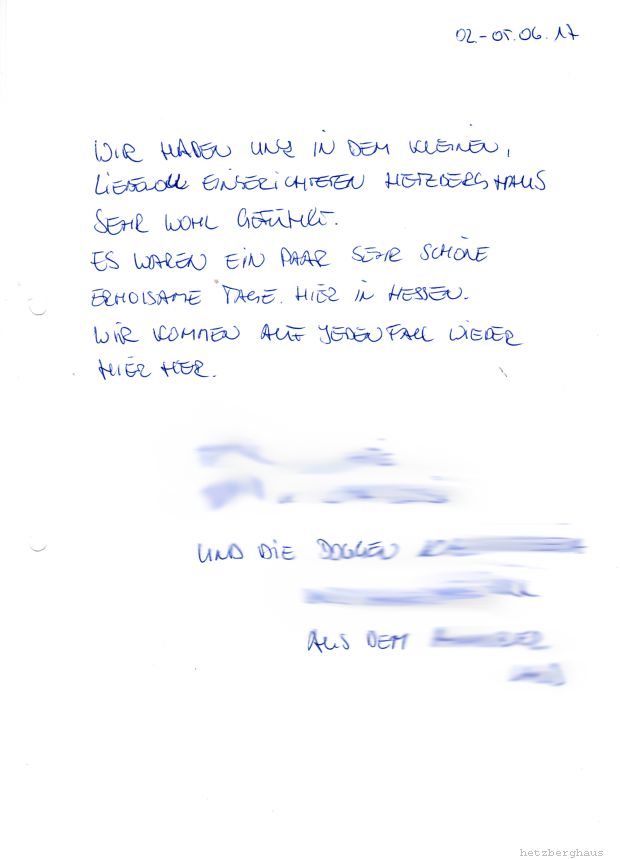 02.-05.06.17
WIR HABEN UNS IN DEM KLEINEN,
LIEBEVOLL EINGERICHTETEN HETZBERGHAUS
SEHR WOHL GEFÜHLT.
ES WAREN EIN PAAR SEHR SCHÖNE
ERHOLSAME TAGE. HIER IN HESSEN.
WIR KOMMEN AUF JEDENFALL WIEDER
HIER HER.
UND DIE DOGGEN
AUS DEM
hetzberghaus